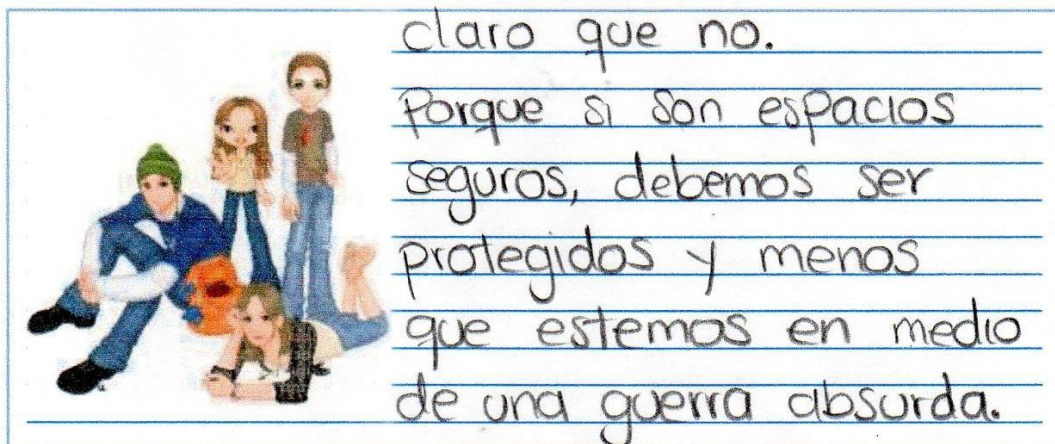 claro que no.
Porque si son espacios
seguros, debemos ser
protegidos y menos
que estemos en medio
de una guerra absurda.